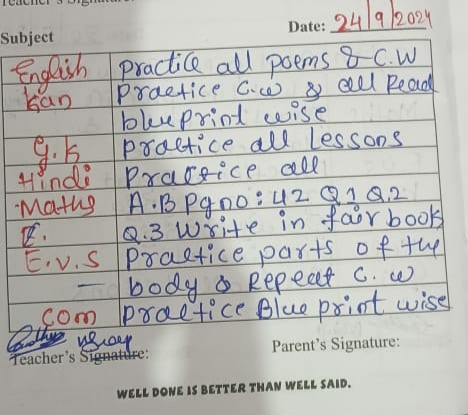 Teacher's Signature
Date: 24/9/2024
Subject
English Practice all poems & C.W
Kan Practice C.W & all Read
blueprint wise
G.K Practice all Lessons
Hindi Practice all
Maths A.B Pg no: 42 Q1 Q.2
E. Q.3 Write in fair book
E.V.S Practice parts of the
body & Repeat C.W
Com Practice Blue print wise
Teacher's Signature:
Parent's Signature:
WELL DONE IS BETTER THAN WELL SAID.